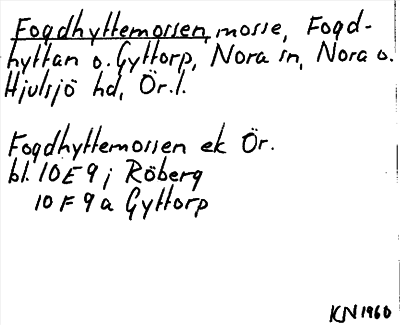 Fogdhyttemossen, mosse, Fogd-
hyttan o. Gyttorp, Nora sn, Nora o.
Hjulsjö hd, Ör. l.
Fogdhyttemossen ek Ör.
bl. 10E9j Röberg
10F9a Gyttorp
KN1960